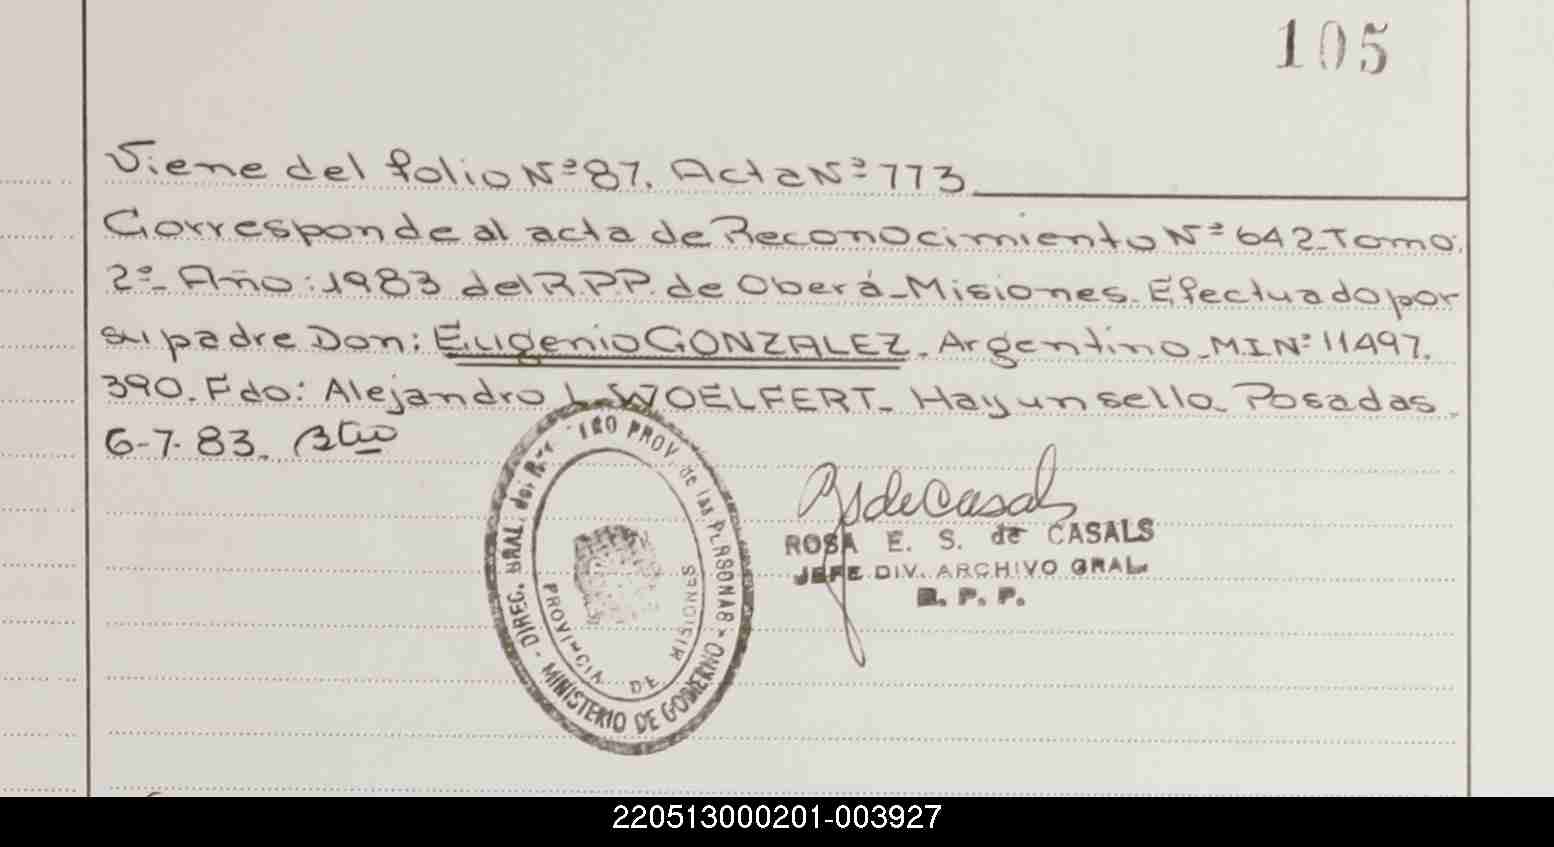 105
Viene del folio Nº 87. Acta Nº 773
Corresponde al acta de Reconocimiento Nº 642_Tomo:
2º_ Año: 1983 del R.P.P. de Oberá_Misiones. Efectuado por
su padre Don: Eugenio GONZALEZ. Argentino. M.I Nº 11497.
390. Fdo: Alejandro L. WOELFERT_ Hay un sello. Posadas.
6-7-83.
DIREC. GRAL. del PROV. de las PERSONAS
PROVINCIA DE MISIONES
MINISTERIO DE GOBIERNO
ROSA E. S. de CASALS
JEFE DIV. ARCHIVO GRAL.
R. P. P.
220513000201-003927